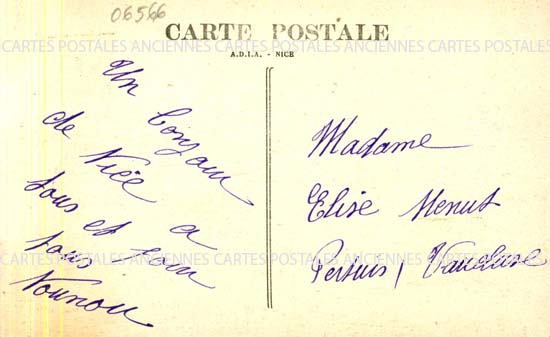 06566
CARTE POSTALE
CARTES POSTALES ANCIENNES CARTES POSTALES ANCIENNES CARTES POSTALES
A.D.I.A. - NICE
Un bonjour
de Nice a
tous et pour
tous
Nounou
Madame
Elise Menut
Pertuis, Vaucluse
CARTES POSTALES ANCIENNES CARTES POSTALES ANCIENNES CARTES POSTALES